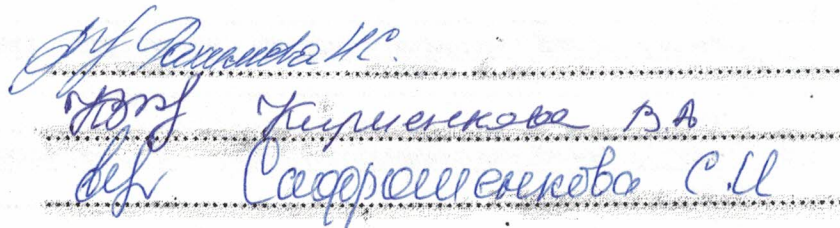 Рахимова Н.С.
Кириенкова В.А
Сафрошенкова С.И